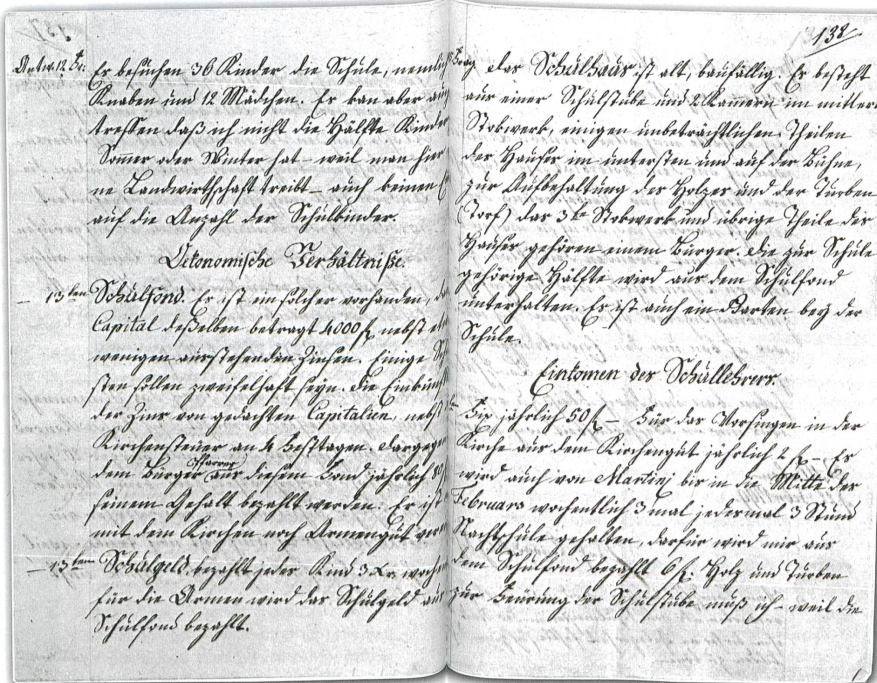 137
Antw. 12. Fr: Es besuchen 36 Kinder die Schule, nemlich
Knaben und 12 Mädchen. Es kan aber ein
treffen daß ich nicht die Hälfte Kinder
Somer oder Winter hat – weil man hier
ne Landwirthschaft treibt – auch keinen
auf die Anzahl der Schulkinder.
Oekonomische Verhältniße.
– 13ten Schulfond. Es ist ein solcher vorhanden, das
Capital deßelben betragt 4000 f. nebst
wenigen ausstehenden Zinsen. Einige
sten sollen zweifelhaft seyn. Die Einkünf
der Zins von gedachten Capitalien, nebst
Kirchensteuer an 4 Festtagen. Dargegen
dem Bürger Pfarrer aus diesem Fond jährlich
seinem Gehalt bezahlt werden. Er ist
mit dem Kirchen noch Armengut
– 13ten Schulgeld bezahlt jedes Kind 3 Kr. wochen
für die Armen wird das Schulgeld aus
Schulfond bezahlt.
138
das Schulhaus ist alt, baufällig. Es besteht
aus einer Schulstube und 2 Kammern im mittern
Stokwerk, einigen unbeträchtlichen Theilen
des Hauses im untersten und auf der Bühne,
zur Aufbehaltung des Holzes und der Turben
(Torf) das 3te Stokwerk und übrige Theile des
Hauses gehören einem Bürger. die zur Schule
gehörige Hälfte wird aus dem Schulfond
unterhalten. Es ist auch ein Garten bey der
Schule.
Einkomen des Schullehrers.
Fix jährlich 50 f. – Für das Vorsingen in der
Kirche aus dem Kirchengut jährlich 2 f. – Es
wird auch von Martinj bis in die Mitte des
Februars wochentlich 3 mal jedesmal 3 Stund
Nachtschule gehalten, darfür wird mir aus
dem Schulfond bezahlt 6 f: Holz und Turben
zur Feürung der Schulstube muß ich – weil die